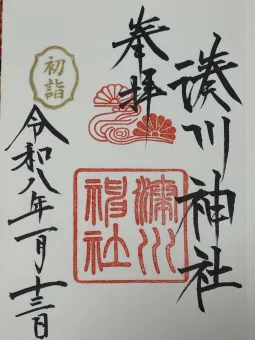 奉拝
湊川神社
湊川神社
初詣
令和八年一月十三日